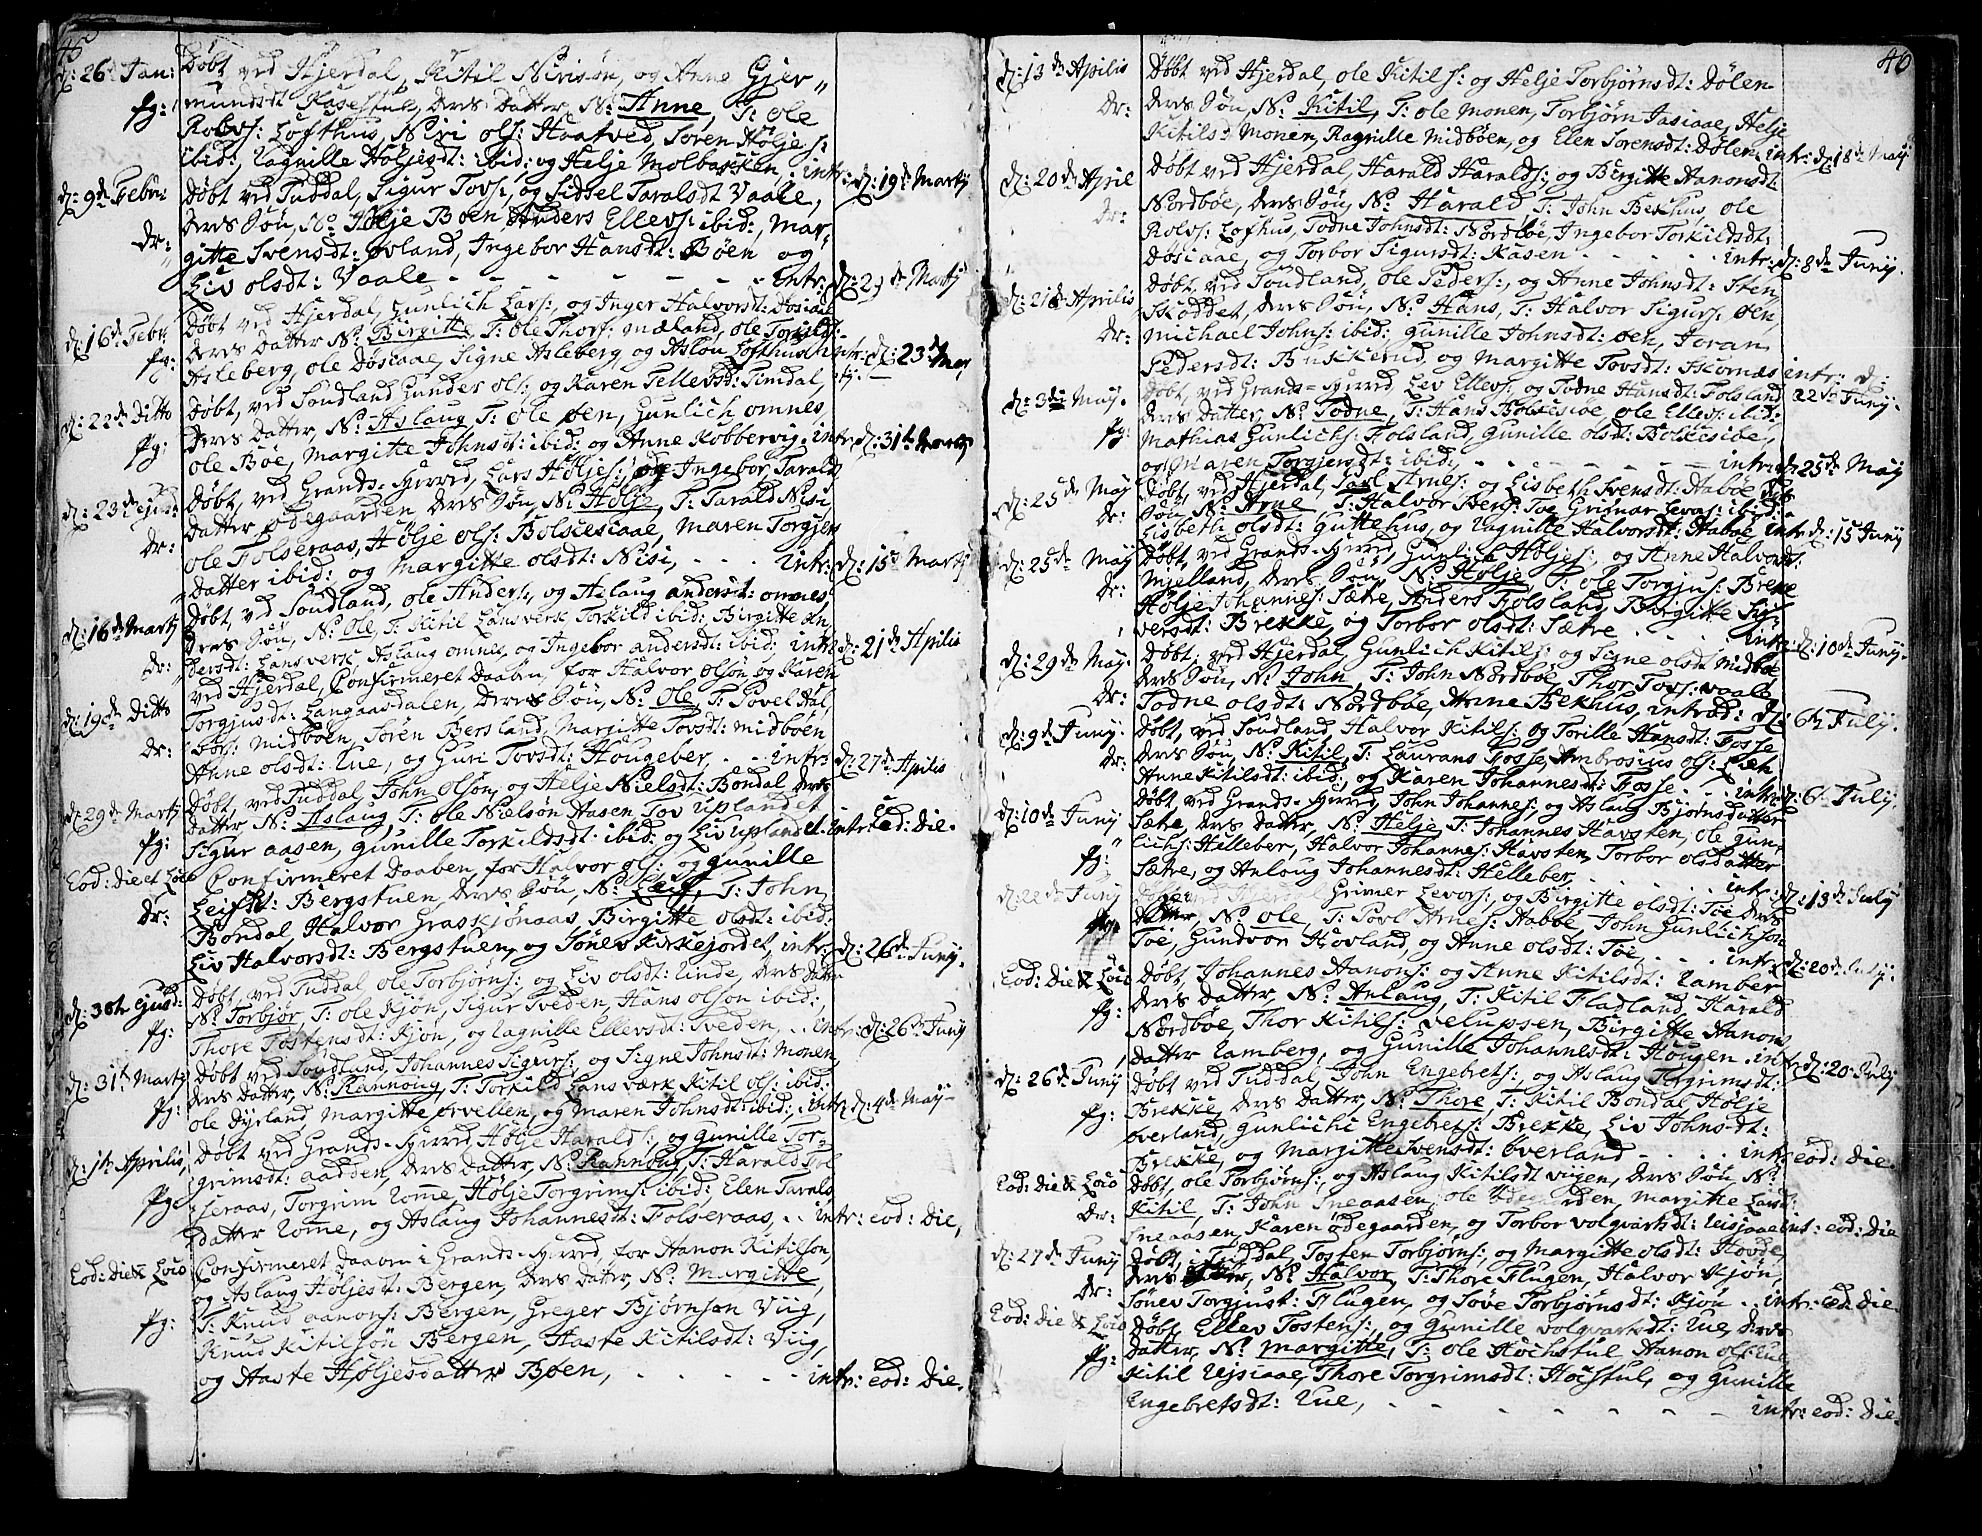 45
d: 26 Jan:
Døbt ved Hjerdal, Kitil Nirisøn, og Anne Gjer„
pg:
mundsdt Kasestul, Deres Datter, N: Anne, T: ole
Rolvs: Lofthus, Niri ols: Haatved, Søren Høljes:
ibid:, Ragnille Høljesdt: ibid: og Helje Molbakken, intr: d: 19de Martij
d: 9de Febr:
Døbt ved Tuddal, Sigur Tovs:, og Sidsel Taralsdt Vaale,
Deres Søn, N: Hølje Boen, Anders Ellevs: ibid:, Mar„
dr:
gitte Svensdt: øvland, Ingebor Hansdt: Bøen og
Liv olsdt: Vaale - - - - - - - intr: d: 2 de Martij
d: 16de Febr:
Døbt ved Hjerdal, Gunlich Lars:, og Inger Halvorsdt: Døsiaae
Deres Datter N: Birgitte, T: ole Thors: mæland, ole Torkilds:
pg:
Asleberg, ole Døsiaae, Signe Asleberg, og Asløu Lofthus intr: d: 23de Mar„
tij.
d: 22de Ditto
Døbt, ved Soudland Gunder ols: og Karen Tellevsdt: Timdal,
Deres Datter, N: Aslaug, T: ole øen, Gunlich omnes,
pg:
ole Bøe, Margitte Johnsdt: ibid: og Anne Kobbervig. intr: d: 31te Martij
d: 23de ejusd:
Døbt, ved Grands-Herred, Lars Høljes: og Ingebor Tarals
Datter ødegaarden, Deres Søn, N: Hølje, T: Tarald Nisi
dr:
ole Folseraas, Hølje ols: Bolkesiaae, Maren Torgjers
Datter ibid:, og Margitte olsdt: Nisi, - - - intr: d: 15de Martij
d: 16de Martij
Døbt, ved Soudland, ole Anders:, og Aslaug andersdt: omnes
Deres Søn, N: Ole, T: Kitil Lansverk, Torkild ibid: Birgitte An,
dr:
dersdt: Lansverk, Aslaug omnes, og Ingebor andersdt: ibid: intr: d: 21de Aprilis
d: 19de Ditto
ved Hjerdal, Confirmeret Daaben, for Halvor olsøn og Karen
Torgjusdt: Langaasdalen, Deres Søn, N: Ole, T: Povel Hal,
dr:
vors: Midbøen, Søren Bersland, Margitte Tovsdt: midbøen
Anne olsdt: Lue, og Guri Tovsdt: Hougeber, - - intr: d: 27de Aprilis
d: 29de Martij
Døbt, ved Tuddal, John olsøn, og Helje Nielsdt: Bondal, Deres
Datter, N: Aslaug, T: ole Nielsøn Aasen, Tov Uplandet
pg:
Sigur aasen, Gunille Torkildsdt: ibid: og Liv Uplandet. intr: eod: die.
Eod: Die et Loco
Confirmeret Daaben, for Halvor ols: og Gunille
Leifsdt: Bergstuen, Deres Søn, N: Leif, T: John
dr:
Bondal, Halvor Graskjønaas, Birgitte olsdt: ibid:
Liv Halvorsdt: Bergstuen, og Sønev Kirkejordet, intr: d: 26de Junij.
d: 30te Ejusd:
Døbt, ved Tuddal, ole Torbjørns:, og Liv olsdt: Linde, Deres Datter
N: Torbjør, T: ole Kjøn, Sigur Sveden, Hans olsøn ibid:,
pg:
Thore Tostensdt: Kjøn, og Ragnille Ellevsdt: Sveden, - - intr: d: 26de Junij
d: 31te Martij
Døbt ved Soudland, Johannes Sigurs: og Signe Johnsdt: Monen,
Deres Datter, N: Rannoug, T: Torkild Lansværk, Kitil ols: ibid:
pg:
ole Dyrland, Margitte ørvellen, og Maren Johnsdt: ibid: intr: d: 4de May-
d: 1te Aprilis,
Døbt ved Grands-Herred, Hølje Haralds:, og Gunille Tor„
grimsdt: aadden, Deres Datter, N: Rannoug, T: Harald Fol
pg:
-seraas, Torgrim Romme, Hølje Torgrims: ibid: Elen Tarals
datter Romme, og Aslaug Johannesdt: Folseraas, - - intr: eod: Die,
Eod: Die & Loco
Confirmeret Daaben i Grands-Herred, for Hanon Kitilsøn,
og Aslaug Høljesdt: Bergen, Deres Datter, N: Margitte,
pg:
T: Knud aanons: Bergen, Greger Bjørnsøn Viig,
Knud Kitilsøn Bergen, Haste Kitilsdt: Viig,
og Haste Høljesdatter Bøen, - - - - - intr: eod: Die.
46
d: 13de Aprilis
Døbt ved Hjerdal, ole Kitils: og Helje Torbjørnsdt: Dølen
dr:
Deres Søn, N: Kitil, T: ole Monen, Torbjørn Jasiaae, Helje
Kitilsdt: Monen, Ragnille Midbøen, og Elen Sørensdt: Dølen. intr: d: 18de May
d: 20de April
Døbt ved Hjerdal, Harald Haralds: og Birgitte Hanonsdt:
dr:
Nordbøe, Deres Søn, N: Harald, T: John Bekhus, ole
Rolvs: Lofhus, Todne Johnsdt: Nordbøe, Ingebor Torkildsdt:
Døsiaae, og Torbor Sigursdt: Kasen - - - - intr: d: 8de Junij.
d: 21de Aprilis
Døbt, ved Soudland, ole Peders:, og Anne Johnsdt: Sten,
skoddet, Deres Søn, N: Hans, T: Halvor Sigurs: øen,
dr:
Michael Johns: ibid: Gunille Johnsdt: øen, Joran
Pedersdt: Bukkerud, og Margitte Tovsdt: Skornæs intr: d:
d: 3de May.
Døbt, ved Grands-Herred, Lev Ellevs: og Todne Hansdt: Folsland 22de Junij.
Deres Datter, N: Todne, T: Hans Bolkesibe, ole Elles: ibid:
pg:
Mathias Gunlichs: Folsland, Gunille olsdt: Bolkesibe,
og Maren Torgjersdt: ibid: - - - - - - intr: d: 25de May
d: 25de May
Døbt, ved Hjerdal, Povl Arnes: og Lisbeth Svensdt: Habøe Deres
dr:
Søn, N: Arne, T: Halvor Bens: Toe, Grimar Levors: ibid:
Lisbeth olsdt: Guttehus, og Ragnille Halvorsdt: Habøe, intr: d: 15 Junij
d: 25de May
Døbt, ved Grands-Herred, Gunlich Høljes:, og Anne Halvorsdt:
dr:
Mjelland, Deres Søn, N: Hølje, T: ole Torgjus: Brekke
Hølje Johannes: Sætre, Anders Folsland, Birgitte Sy,
versdt: Brekke, og Torbor olsdt: Sætre - - - - intr: d: 10de Junij.
d: 29de May.
Døbt, ved Hjerdal, Gunlich Kitils: og Signe olsdt Midbøe
dr:
Deres Søn, N: John, T: John Nordbøe, Thor Tovs: vaale
Todne olsdt: Nordbøe, Anne Bekhus, introd: d: 6te Julij.
d: 9de Junij.
Døbt, ved Soudland, Halvor Kitils: og Torille Hansdt: Fosse
dr:
Deres Søn, N: Kitil, T: Laurans Fosse, Ambrosius ols: Lieh
Anne Kitilsdt: ibid:, og Karen Johannesdt: Fosse - - intr: d: 6te Julij.
d: 10de Junij
Døbt ved Grands-Herred, John Johannes:, og Aslaug Bjørnsdatter
Sætre, Deres Datter, N: Helje T: Johannes Håvsten, ole Gun,
pg:
lichs: Helleber, Halvor Johannes: Håvsten, Torbor olsdatter
Sætre, og Anloug Johannesdt: Helleber, - - - intr: d: 13de Julij
d: 22de Junij
Døbt ved Hjerdal Grimer Levors: og Birgitte olsdt: Toe, Deres
N: ole, T: Povl Arnes: Habbøe, John Gunlichsøn
Toe, Gundvor Hovland, og Anne olsdt: Toe, - - intr: d: 20de Julij.
Eod: Die & Loco
Døbt, Johannes Hanons: og Anne Kitilsdt: Lamber
pg:
Deres Datter, N: Anlaug, T: Kitil Fladland, Harald
Nordbøe, Thor Kitils: Velupsen, Birgitte Hanons
datter Lamberg, og Gunille Johannesdt: Hougen. intr: d: 20 Julij
d: 26de Junij
Døbt ved Tuddal, John Engebrets:, og Aslaug Torgrimsdt:
pg:
Brekke, Deres Datter, N: Thore, T: Kitil Bondal, Hølje
øverland, Gunlich Engebrets: Brekke, Liv Johnsdt:
Brekke, og Margitte Svensdt: øverland - - - - intr: eod: Die.
Eod: Die & Loco
Døbt, ole Torbjørns:, og Aslaug Kitilsdt vigen, Deres Søn, N:
dr:
Kitil, T: John Sneaasen, ole ødegaarden, Margitte Larsdt:
Sneaasen, Karen ødegaarden, og Torbor volqvartsdt: Reisjaae int: eod: die
d: 27de Junij
Døbt, i Tuddal, Tosten Torbjørns:, og Margitte olsdt: Hovde,
dr:
Deres N: Halvor, T: Thore Flugen, Halvor Kjøn,
Sønev Torgjusdt: Flugen, og Søve Torbjørnsdt: Kjøn - - intr: eod: die.
Eod: die & Loco
Døbt, Ellev Tostens:, og Gunille volqvartsdt: Lue, Deres
pg:
Datter, N: Margitte, T: ole Hochstul, Hanon ols: Lue,
Kitil Rejsiaae, Thore Torgrimsdt: Hochstul, og Gunille
Engebretsdt: Lue, - - - - - - - intr: eod: Die.